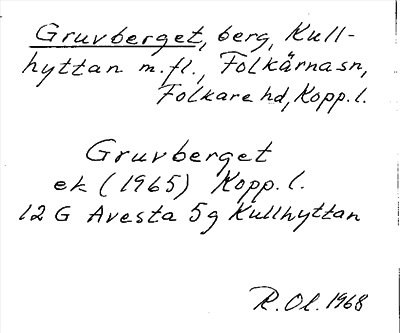 Gruvberget, berg, Kull-
hyttan m.fl., Folkärna sn,
Folkare hd, Kopp. l.
Gruvberget
ek (1965) Kopp. l.
12 G Avesta 5g Kullhyttan
R. Ol. 1968